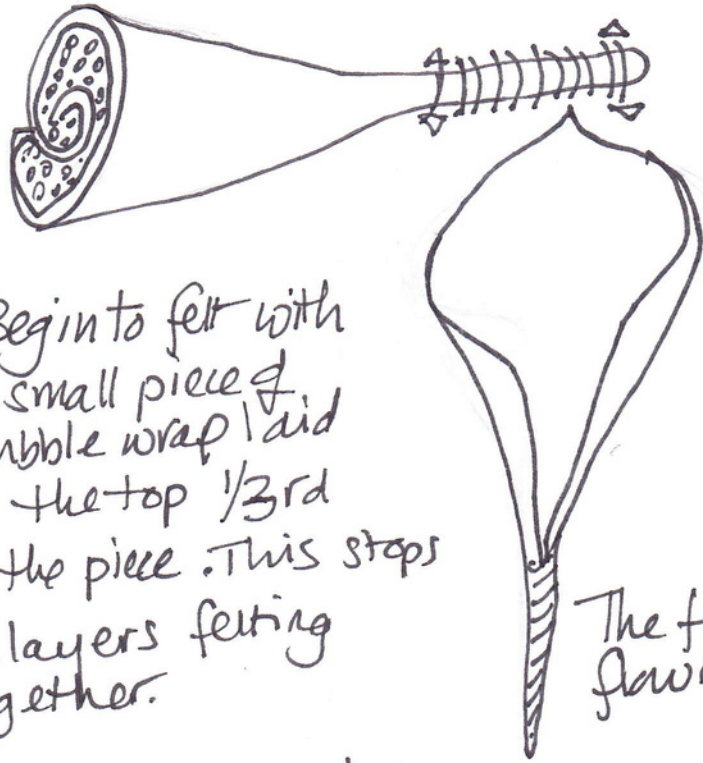 Begin to felt with
small piece of
bubble wrap laid
the top 1/3rd
the piece. This stops
layers felting
together.
The f
flow